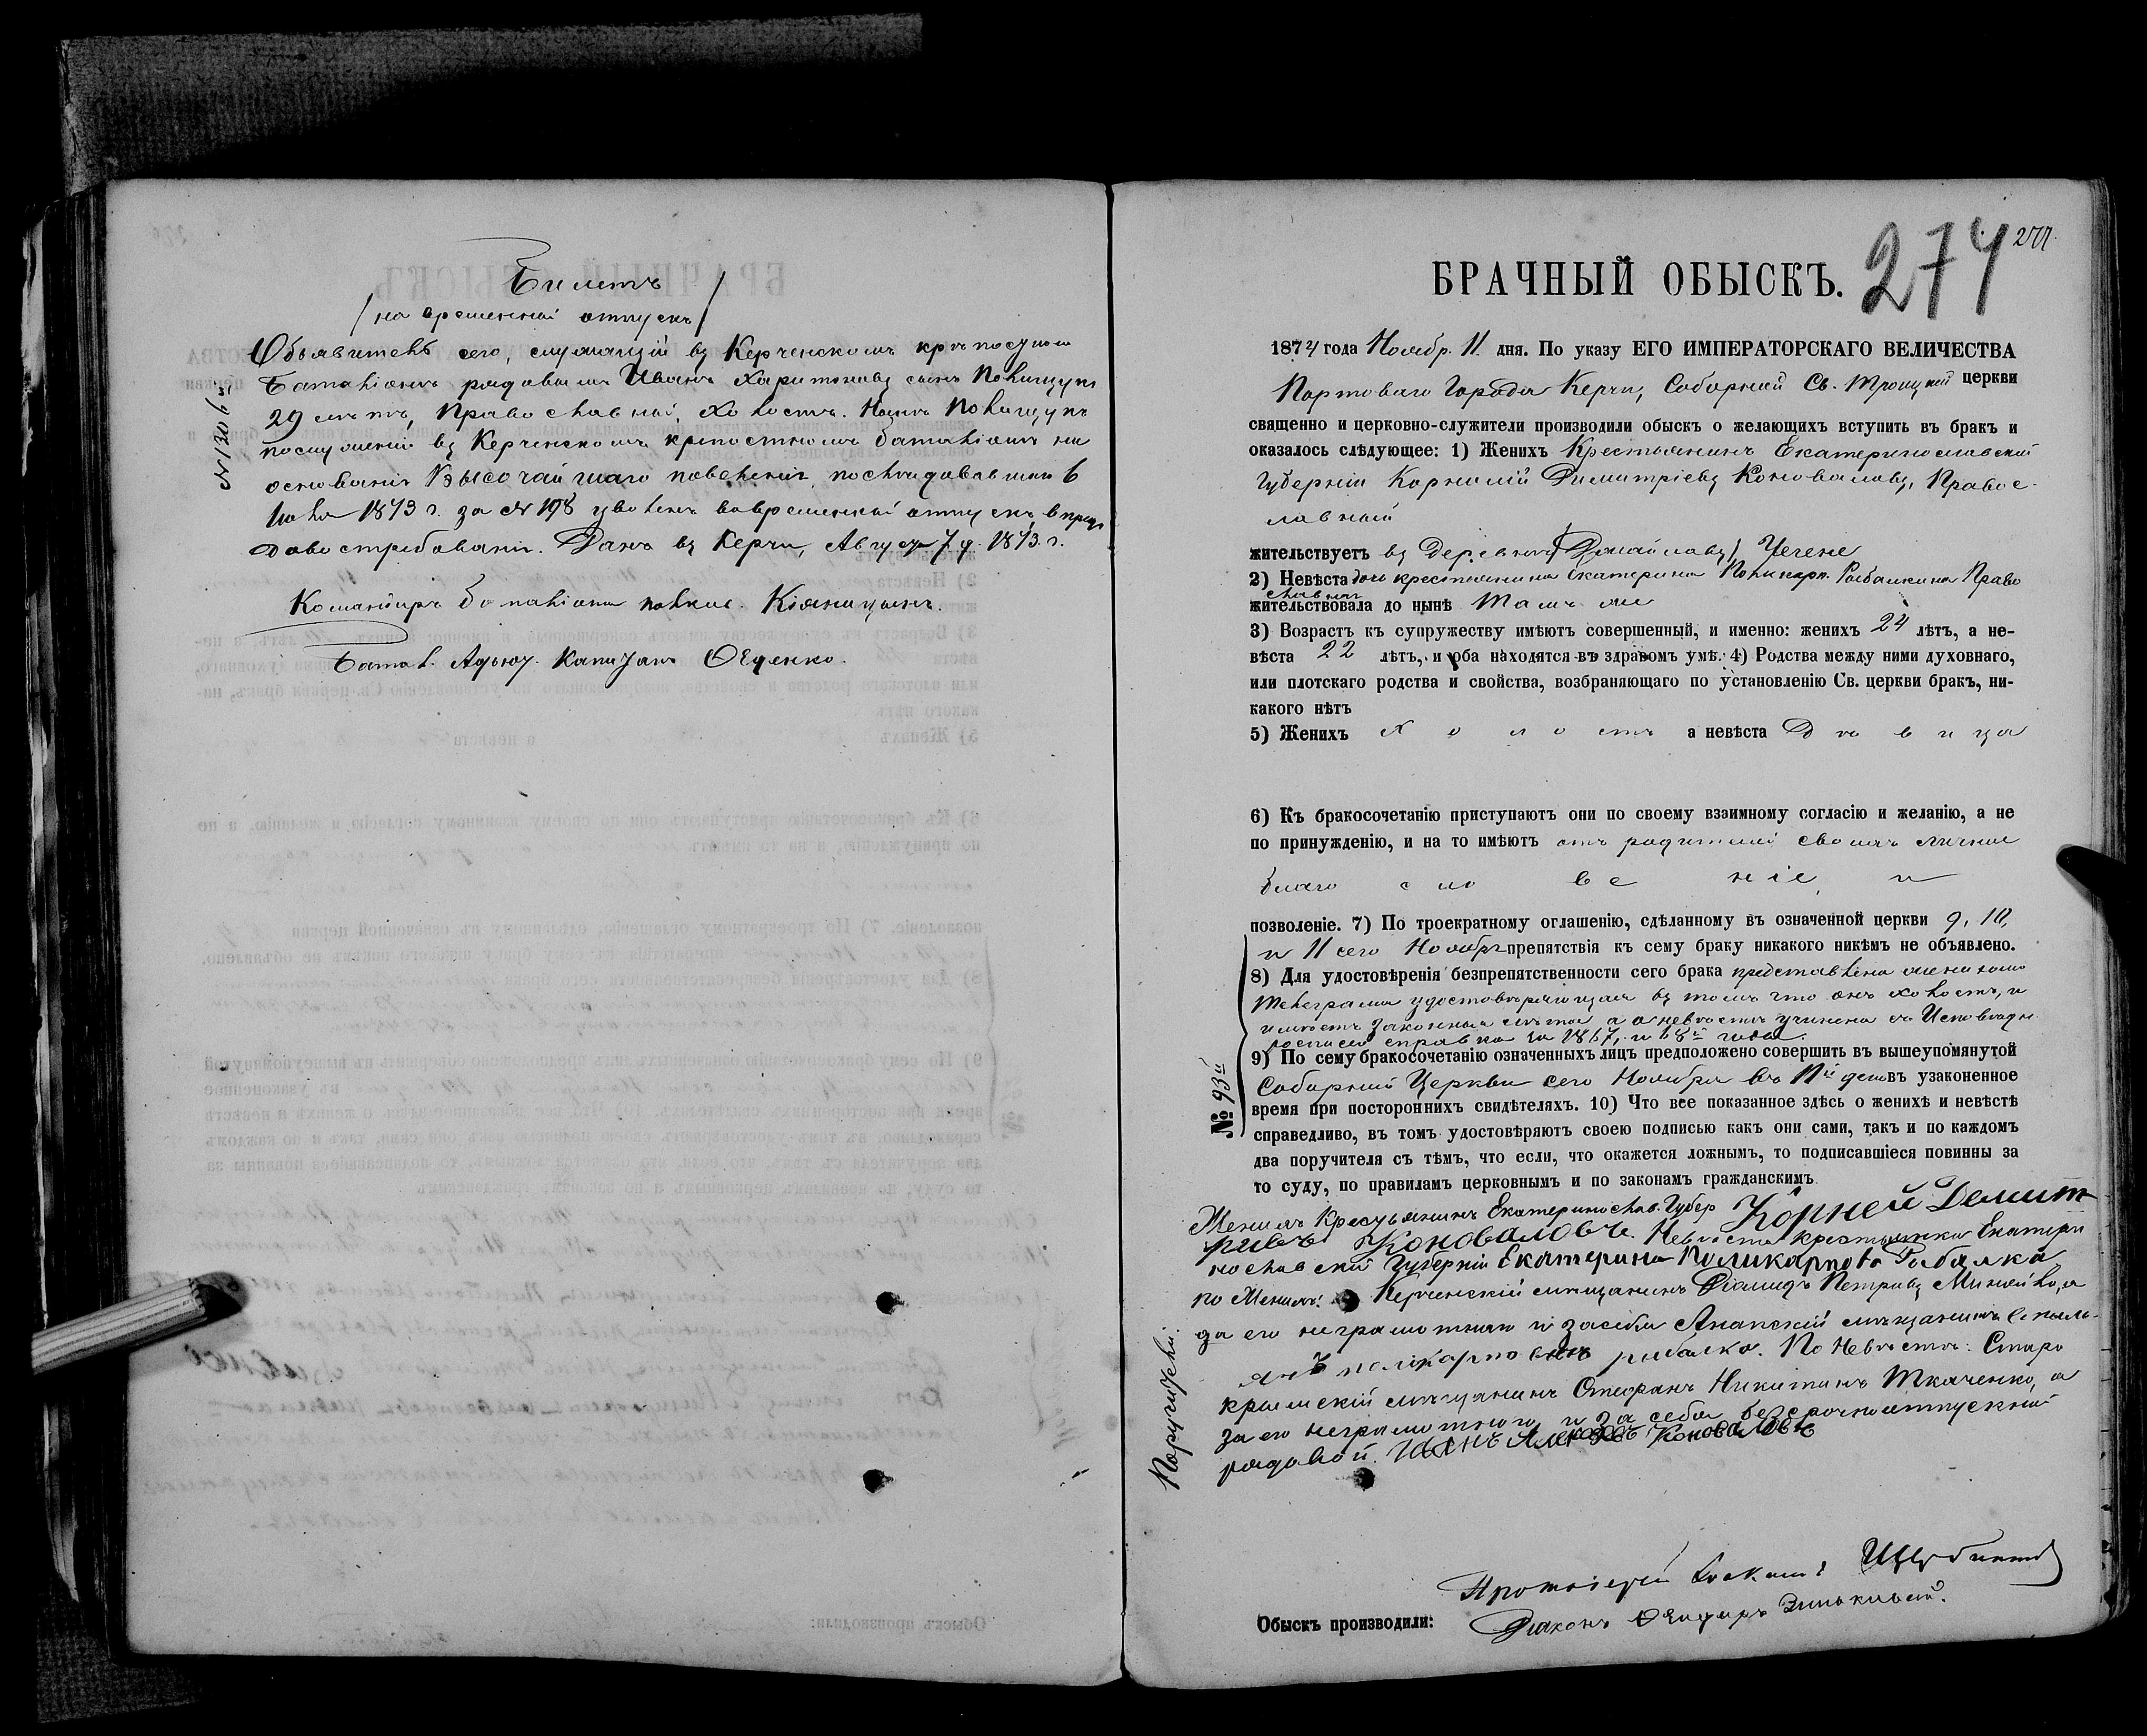 Билетъ
/на временный отпускъ/
Объявитель сего, служащій въ Керченскомъ крѣпостномъ
баталіонѣ рядовымъ Иванъ Харитоновъ сынъ Полищукъ
29 лѣтъ, Православный, Холостъ. Нынѣ Полищукъ
№ 1306
Керченскомъ крепостномъ баталіонѣ на
основаніи Высочайшаго повеленія, последовавшаго 6
Іюля 1873 г. за № 198 уволенъ вовременный отпускъ, впредь
довостребованія. Данъ въ Керчи, Августа 7 д. 1873 г.
Командиръ баталіона
Батал. Адъют. Капитанъ Ѳеденко.
274
277.
БРАЧНЫЙ ОБЫСКЪ.
1874 года Ноябр. 11. дня. По указу ЕГО ИМПЕРАТОРСКАГО ВЕЛИЧЕСТВА
Портоваго Города Керчи, Соборной Св. Троицкой церкви
священно и церковно-служители производили обыскъ о желающихъ вступить въ бракъ и
оказалось слѣдующее: 1) Женихъ Крестьянинъ Екатеринославской
Губерніи Корнилій Димитріевъ Коноваловъ, Правос-
лавный
жительствуетъ въ Деревни
2) Невѣста дочь крестьянина Екатерина Поликарп. Рыбалкина Право
славная
жительствовала до нынѣ Тамъ же
3) Возрастъ къ супружеству имѣютъ совершенный, и именно: женихъ 24 лѣтъ, а не-
вѣста 22 лѣтъ, и оба находятся въ здравомъ умѣ. 4) Родства между ними духовнаго,
или плотскаго родства и свойства, возбраняющаго по установленію Св. церкви бракъ, ни-
какого нѣтъ
5) Женихъ Холостъ а невѣста Дѣвица
6) Къ бракосочетанію приступаютъ они по своему взаимному согласію и желанію, а не
по принужденію, и на то имѣютъ отъ родителей своихъ личное
благословеніе и
позволеніе. 7) По троекратному оглашенію, сдѣланному въ означенной церкви 9, 10,
и 11 сего Ноября препятствія къ сему браку никакого никѣмъ не объявлено.
8) Для удостовѣренія безпрепятственности сего брака представлена женихомъ
телеграма удостовѣряющая въ томъ что онъ холостъ, и
имѣетъ законныя лѣта а о невѣстѣ учинена въ Исповѣдн.
росписяхъ справка за 1867, и 68й года.
9) По сему бракосочетанію означенныхъ лицъ предположено совершить въ вышеупомянутой
№ 93й
Соборной Церкви сего Ноября въ 11й день въ узаконенное
время при постороннихъ свидѣтеляхъ. 10) Что все показанное здѣсь о женихѣ и невѣстѣ
справедливо, въ томъ удостовѣряютъ своею подписью какъ они сами, такъ и по каждомъ
два поручителя съ тѣмъ, что если, что окажется ложнымъ, то подписавшіеся повинны за
то суду, по правиламъ церковнымъ и по законамъ гражданскимъ.
Женихъ Крестьянинъ Екатеринослав. Губер Корней Демит
ривъ Коноваловъ. Невѣста крестьянка Екатери
нославской Губерніи Екатерина Поликарпова Рибалка
Поручители:
по Женихѣ: Керченскій мещанинъ Діамидъ Петровъ а
за его неграмотнаго и засебя Анапскій мѣщанинъ
поликарповъ рибалко. По Невѣсте: Старо
крымскій мѣщанинъ Стефанъ Никитинъ Ткаченко, а
за его неграмотнаго и за себя безсрочноотпускной
рядовой. Иванъ Коноваловъ
Протоіерей
Обыскъ производили: Діаконъ